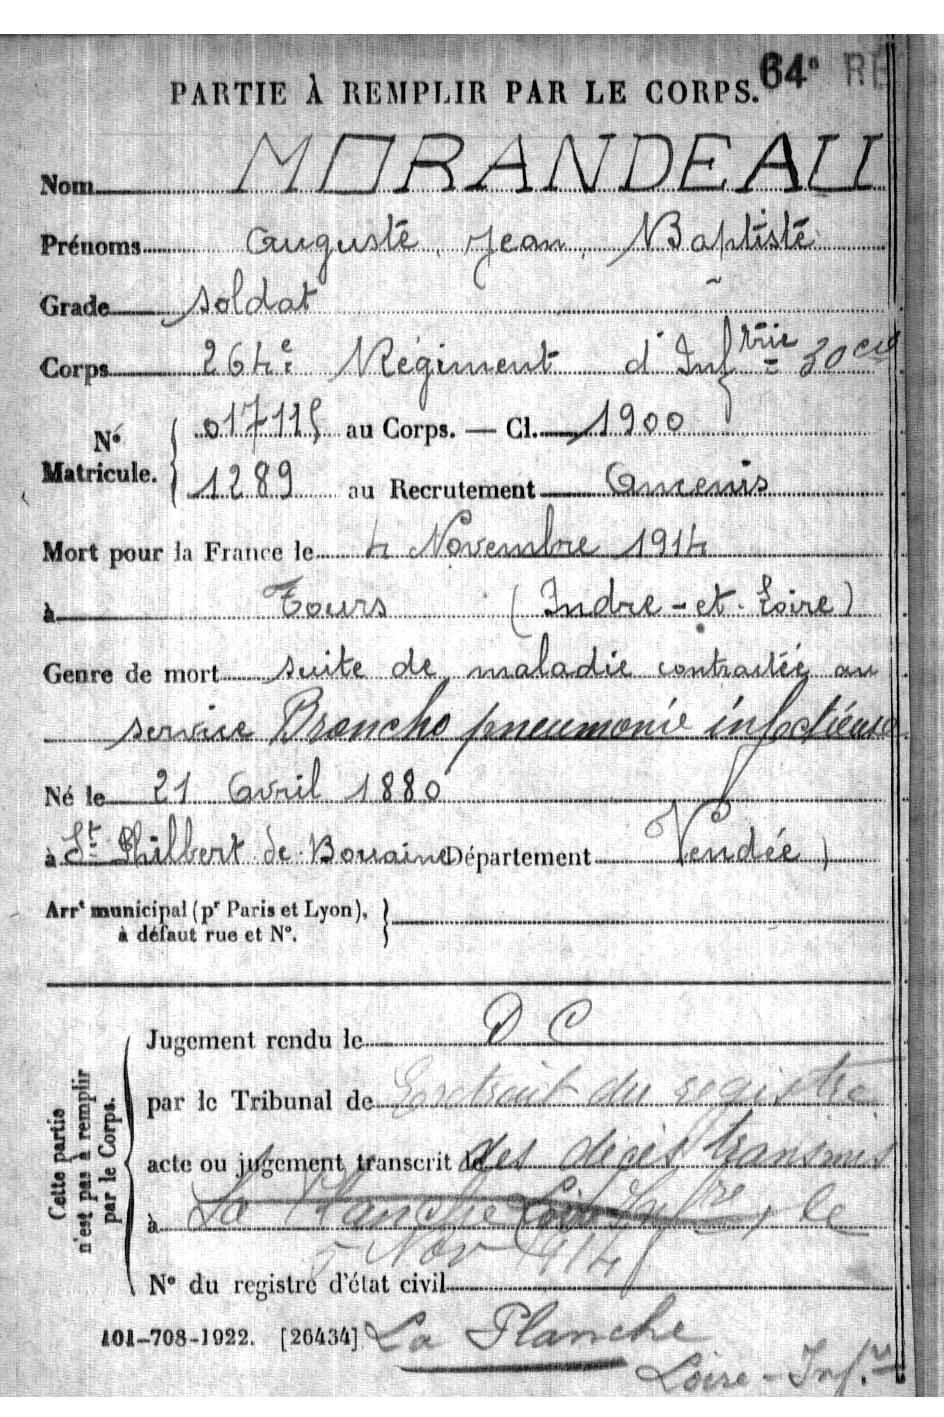 64e RÉ
PARTIE À REMPLIR PAR LE CORPS.
Nom MORANDEAU
Prénoms Auguste, Jean, Baptiste
Grade soldat
Corps 264e Régiment d'Inftrie = 30cie
No Matricule. { 017115 au Corps. — Cl. 1900
1289 au Recrutement Ancenis
Mort pour la France le 4 Novembre 1914
à Tours (Indre-et-Loire)
Genre de mort suite de maladie contractée au
service Broncho pneumonie infectieuse
Né le 21 Avril 1880
à St Philbert de Bouaine Département Vendée)
Arrt municipal (pr Paris et Lyon), }
à défaut rue et No.
Cette partie
n'est pas à remplir
par le Corps.
Jugement rendu le D C
par le Tribunal de Extrait du registre
acte ou jugement transcrit le des décès transmis
à La Planche Loire Infre, le
5 Nov 1914
No du registre d'état civil
101-708-1922. [26434] La Planche
Loire-Infre